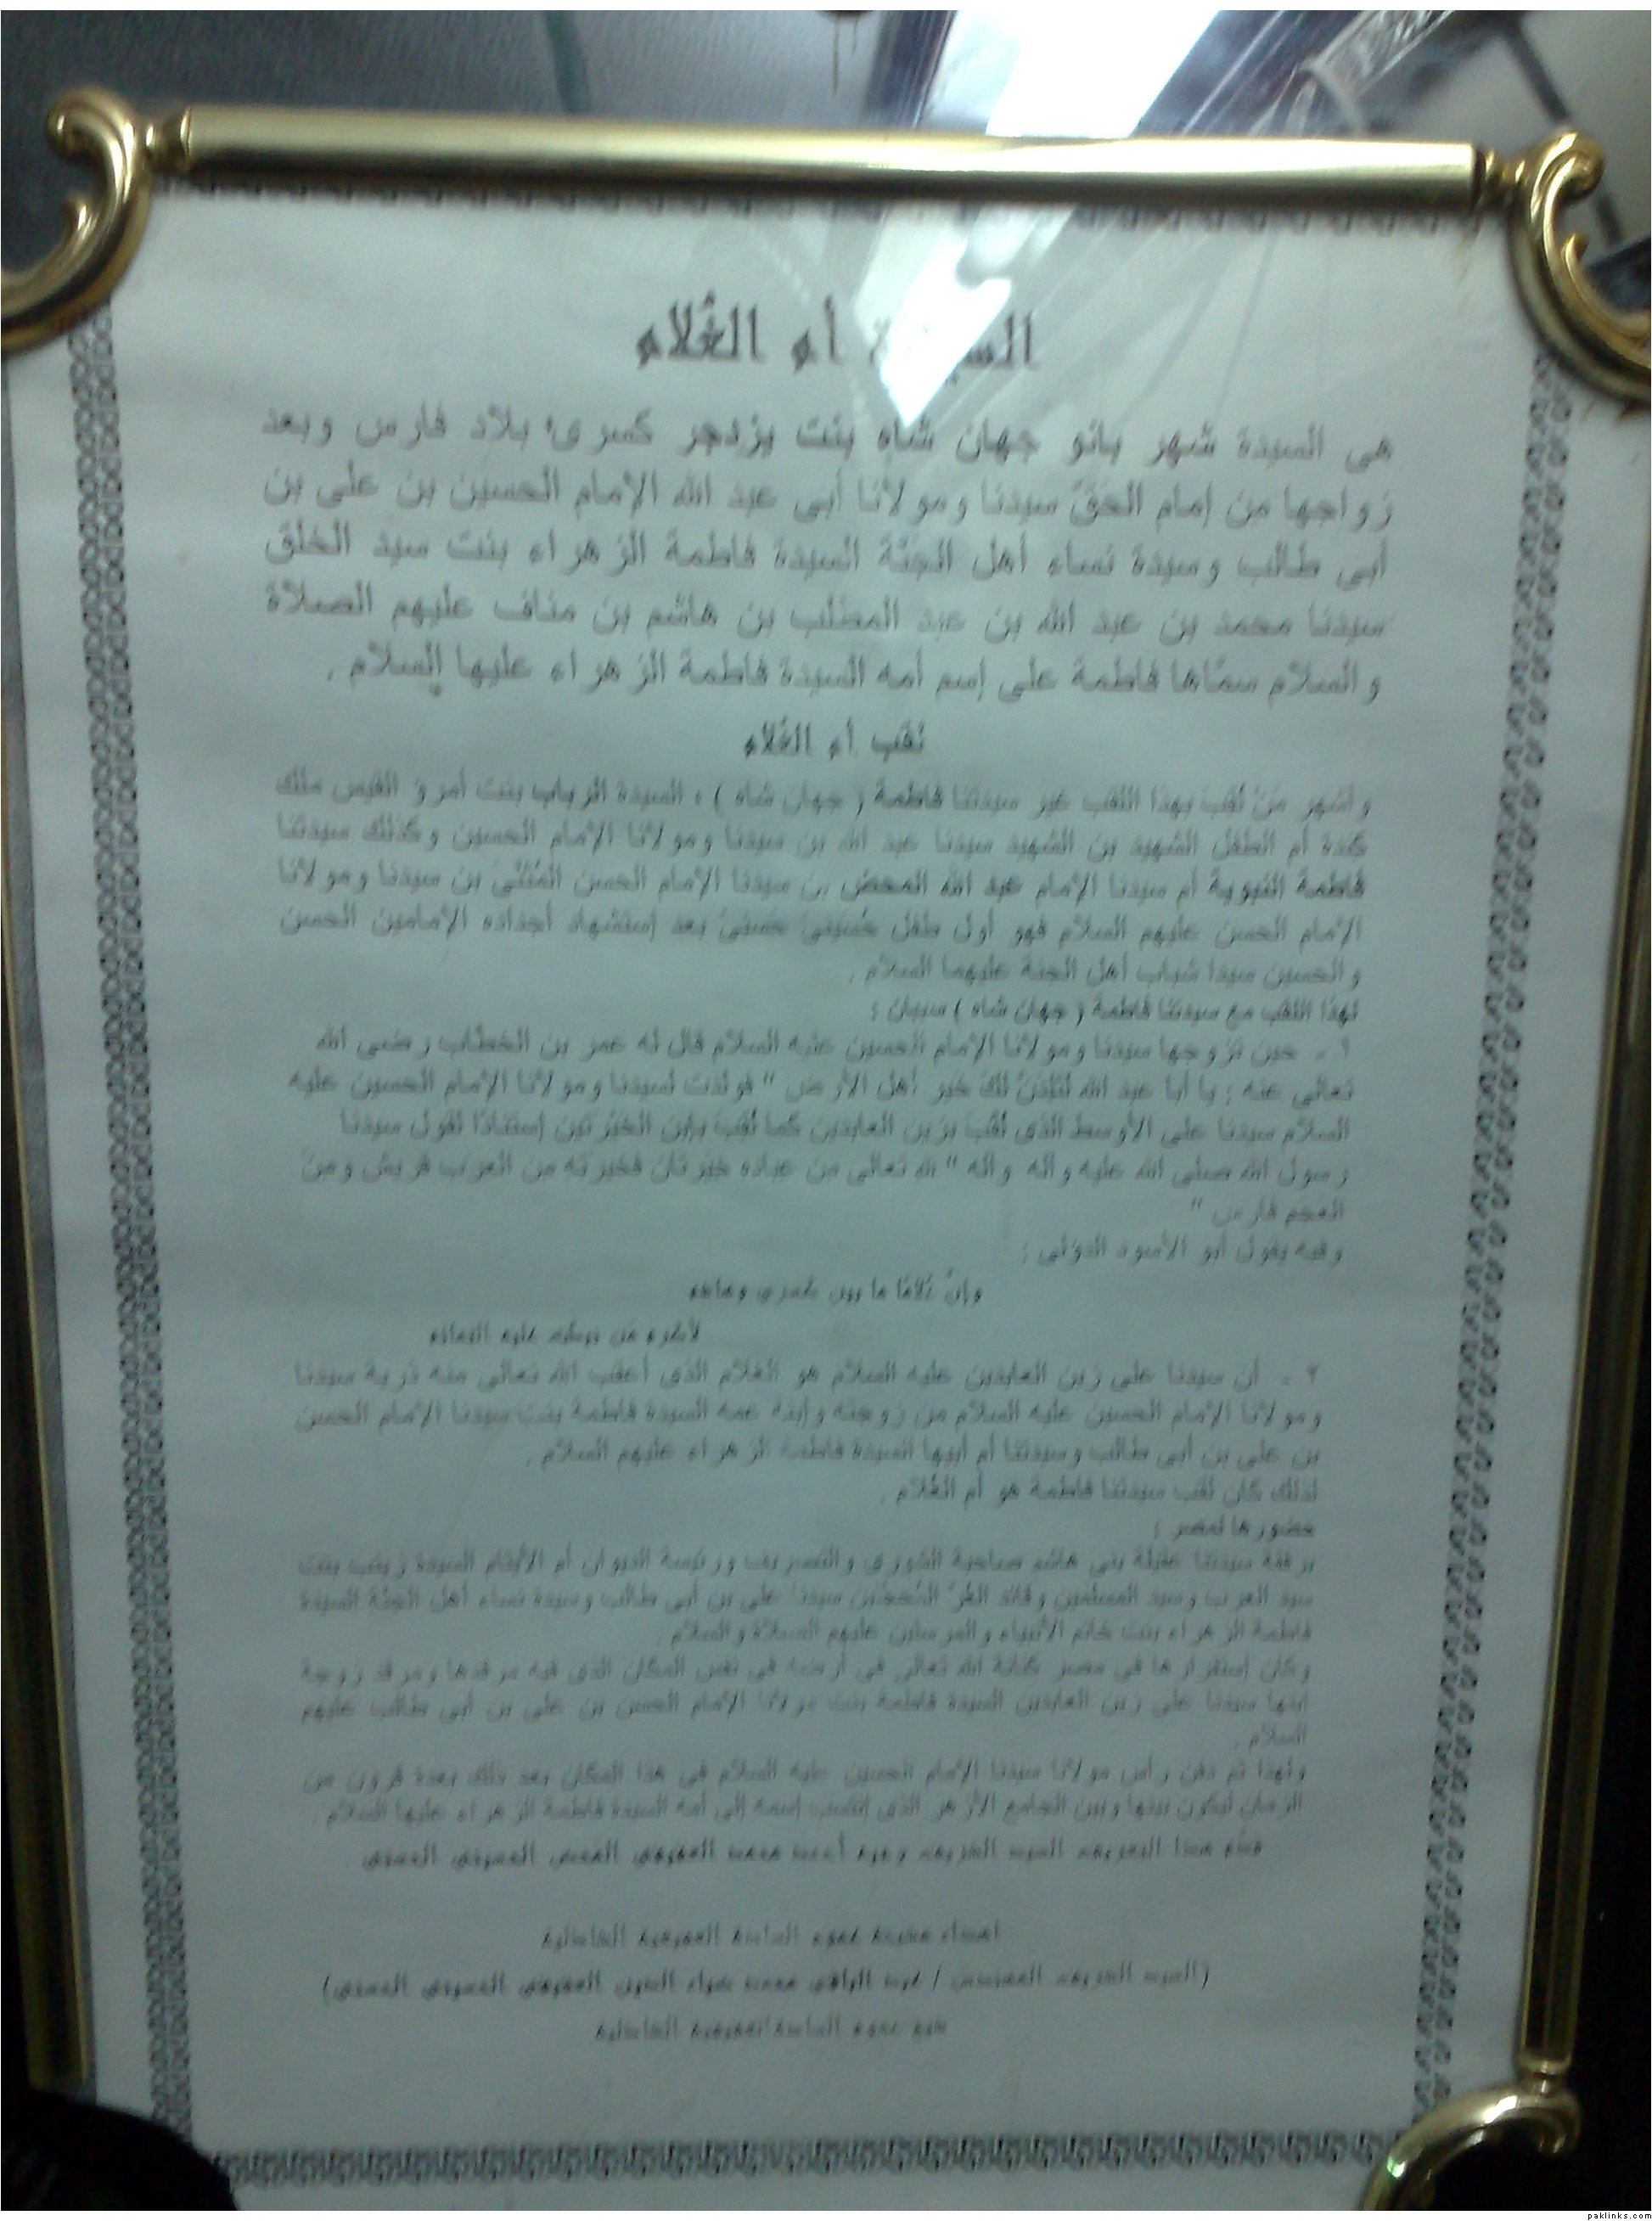 السيدة أم الغُلام
هى السيدة شهر بانو جهان شاه بنت يزدجر كسرىٰ بلاد فارس وبعد
زواجها من إمام الحقّ سيدنا ومولانا أبى عبد الله الإمام الحسين بن على بن
أبى طالب وسيدة نساء أهل الجنّة السيدة فاطمة الزهراء بنت سيد الخلق
سيدنا محمد بن عبد الله بن عبد المطلب بن هاشم بن مناف عليهم الصلاة
والسلام سمّاها فاطمة على إسم أمه السيدة فاطمة الزهراء عليها السلام .
لقب أم الغُلام
وأشهر منّ لُقِبَ بهذا اللقب غير سيدتنا فاطمة ( جهان شاه ) ، السيدة الرباب بنت أمرئ القيس ملك
كندة أم الطفل الشهيد بن الشهيد سيدنا عبد الله بن سيدنا ومولانا الإمام الحسين وكذلك سيدتنا
فاطمة النبوية أم سيدنا الإمام عبد الله المحض بن سيدنا الإمام الحسن المُثنّىٰ بن سيدنا ومولانا
الإمام الحسن عليهم السلام فهو أول طفل حُسينى حسنى بعد إستشهاد أجداده الإمامين الحسن
والحسين سيدا شباب أهل الجنة عليهما السلام .
لهذا اللقب مع سيدتنا فاطمة ( جهان شاه ) سببان :
١ - حين تزوجها سيدنا ومولانا الإمام الحسين عليه السلام قال له عمر بن الخطاب رضى الله
تعالى عنه : يا أبا عبد الله لتلدَنّ لك خير أهل الأرض " فولدت لسيدنا ومولانا الإمام الحسين عليه
السلام سيدنا على الأوسط الذى لُقّب بزين العابدين كما لُقبَ بإبن الخيرتين إستناداً لقول سيدنا
رسول الله صلى الله عليه وآله " لله تعالى من عباده خيرتان فخيرته من العرب قريش ومن
العجم فارس "
وفيه يقول أبو الأسود الدؤلى :
وإنّ غُلامًا ما بين كسرى وهاشم
لأكرم من نيطت عليه التمائم
٢ - أن سيدنا على زين العابدين عليه السلام هو الغلام الذى أعقب الله تعالى منه ذرية سيدنا
ومولانا الإمام الحسين عليه السلام من زوجته وإبنة عمه السيدة فاطمة بنت سيدنا الإمام الحسن
بن على بن أبى طالب وسيدتنا أم أبيها السيدة فاطمة الزهراء عليهم السلام .
لذلك كان لقب سيدتنا فاطمة هو أم الغُلام .
حضورها لمصر :
برفقة سيدتنا عقيلة بنى هاشم صاحبة الشورى والتصريف ورئيسة الديوان أم الأيتام السيدة زينب بنت
سيد العرب وسيد المسلمين وقائد الغُرّ المُحجّلين سيدنا على بن أبى طالب وسيدة نساء أهل الجنّة السيدة
فاطمة الزهراء بنت خاتم الأنبياء والمرسلين عليهم الصلاة والسلام .
وكان إستقرارها فى مصر كنانة الله تعالى فى أرضه فى نفس المكان الذى فيه مرقدها ومرقد زوجة
إبنها سيدنا على زين العابدين السيدة فاطمة بنت مولانا الإمام الحسن بن على بن أبى طالب عليهم
السلام .
ولهذا تم دفن رأس مولانا سيدنا الإمام الحسين عليه السلام فى هذا المكان بعد ذلك بعدة قرون من
الزمان ليكون بينها وبين الجامع الأزهر الذى إنتسب إسمه إلى أمه السيدة فاطمة الزهراء عليها السلام .
هذا التعريف السيد الشريف أحمد محمد الحسنى
إهداء مشيخة عموم السادة
(السيد الشريف المهندس / محمد ضياء الدين)
شيخ عموم السادة
paklinks.com